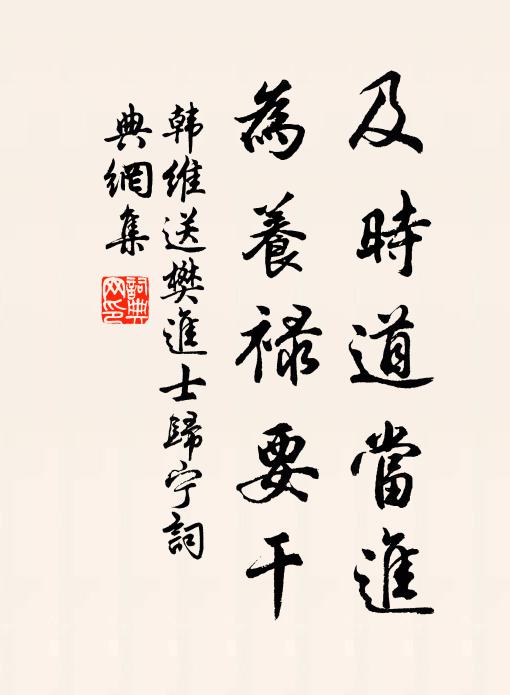 及時道當進
為養祿要干
韩維送樊進士歸宁詞
典網集
詞典網印